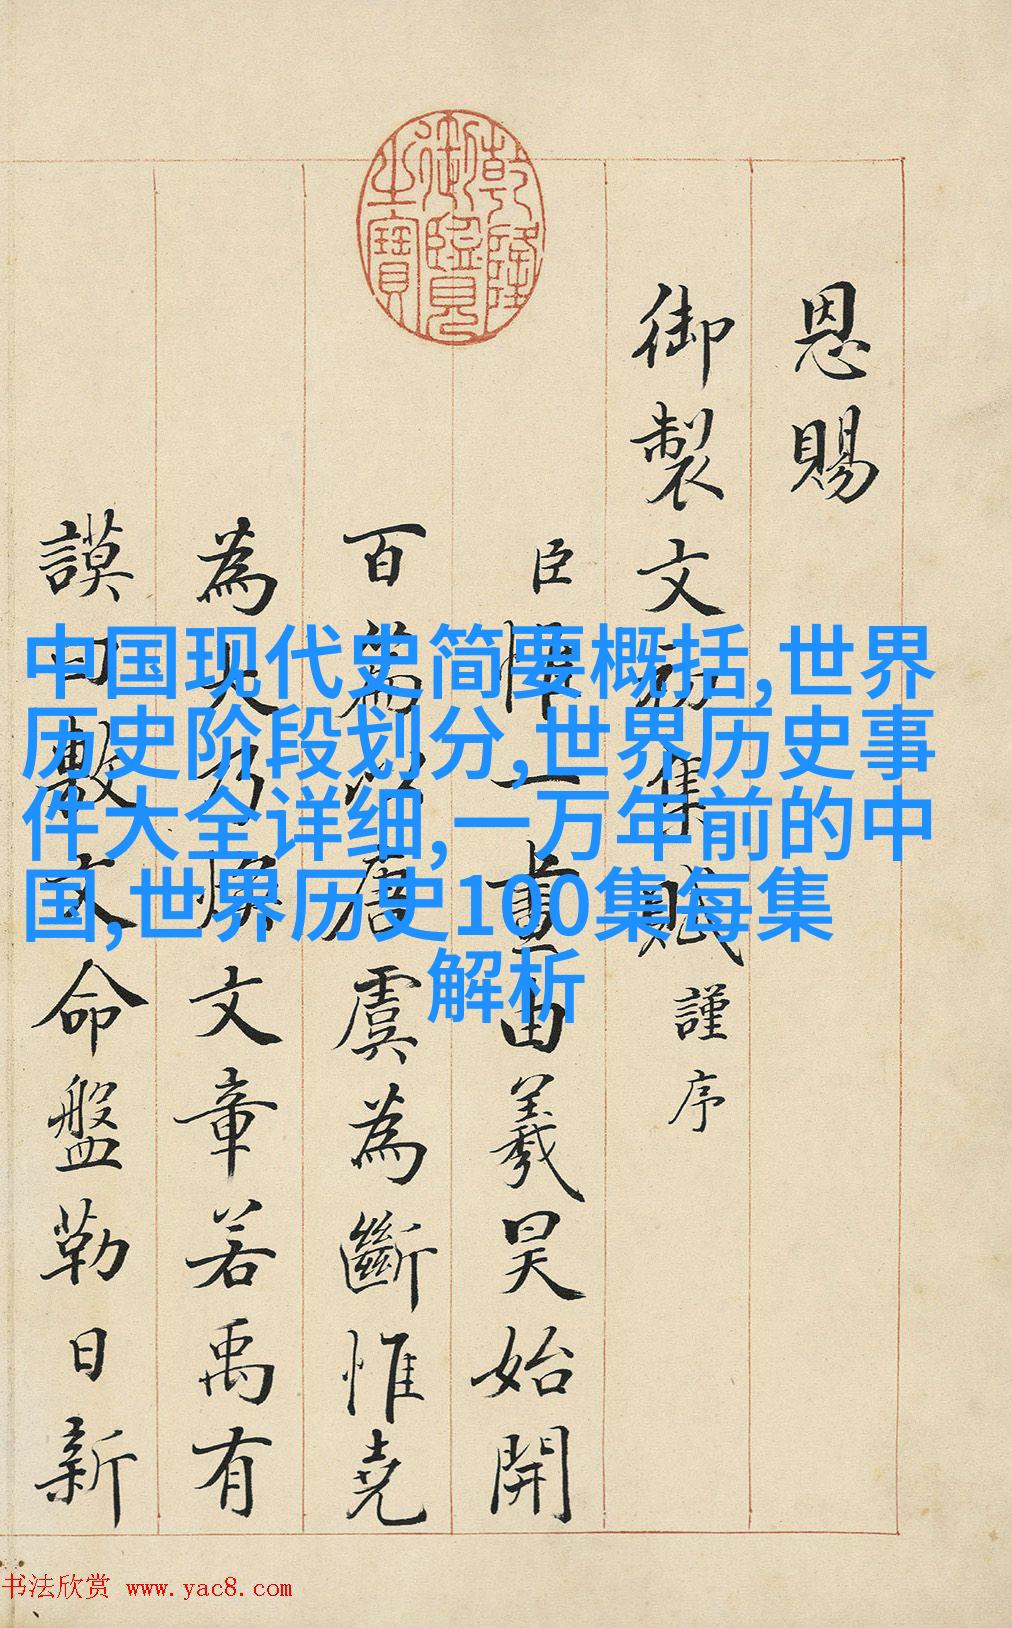 乾隆御覽之寶
恩賜
御製文初集賦謹序
臣一由羲昊始開
百篇以唐虞為斷惟堯
為大乃煥文章若禹有
謨曰敷文命盤勒日新
中国现代史简要概括,世界
历史阶段划分,世界历史事
件大全详细,一万年前的中
国,世界历史100集每集
解析
书法欣赏 www.yac8.com